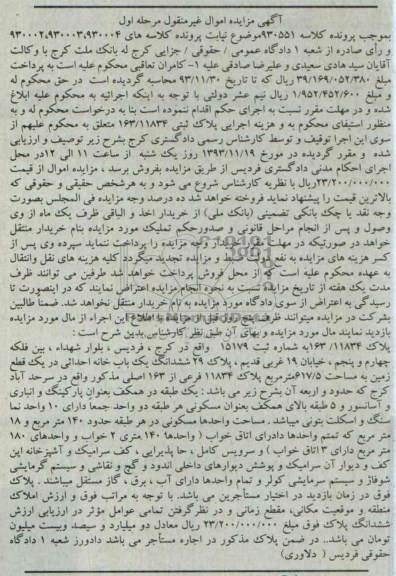 آگهی مزایده اموال غیرمنقول مرحله اول
بموجب پرونده کلاسه ۹۳۰۵۵۱موضوع نیابت پرونده کلاسه های ۹۳۰۰۰۲،۹۳۰۰۰۳،۹۳۰۰۰۴
و رأی صادره از شعبه ۱ دادگاه عمومی / حقوقی / جزایی کرج له بانک ملت کرج با وکالت
آقایان سید هادی سعیدی و علیرضا صادقی علیه ۱- کامران تعاقبی محکوم علیه است به پرداخت
مبلغ ۳۹/۱۶۹/۰۵۲/۳۸۰ ریال که تا تاریخ ۹۳/۱۱/۳۰ محاسبه گردیده است در حق محکوم له
و مبلغ ۱/۹۵۲/۴۵۲/۶۰۰ ریال نیم عشر دولتی با توجه به اینکه اجرائیه به محکوم علیه ابلاغ
شده و در مهلت مقرر نسبت به اجرای حکم اقدام ننموده است بنا به درخواست محکوم له و به
منظور استیفای محکوم به و هزینه اجرایی پلاک ثبتی ۱۶۳/۱۱۸۳۴ متعلق به محکوم علیهم از
سوی این اجرا توقیف و توسط کارشناس رسمی دادگستری کرج بشرح زیر توصیف و ارزیابی
شده و مقرر گردیده در مورخ ۱۳۹۳/۱۱/۱۹ روز یک شنبه از ساعت ۱۱ الی ۱۲در محل
اجرای احکام مدنی دادگستری فردیس از طریق مزایده بفروش برسد ، مزایده اموال از قیمت
۲۳/۲۰۰/۰۰۰/۰۰۰ریال با نظریه کارشناس شروع می شود و به هرشخص حقیقی و حقوقی که
بالاترین قیمت را پیشنهاد نماید فروخته خواهد شد ده درصد وجه مزایده فی المجلس بصورت
وجه نقد یا چک بانکی تضمینی (بانک ملی) از خریدار اخذ و الباقی ظرف یک ماه از وی
وصول و پس از انجام مراحل قانونی و صدورحکم تملیک مورد مزایده بنام خریدار منتقل
خواهد در صورتیکه در مهلت مقرر خریدار وجه مزایده را پرداخت ننماید سپرده وی پس از
کسر هزینه های مزایده به نفع دولت ضبط و مزایده تجدید میگردد کلیه هزینه های نقل وانتقال
به عهده محکوم علیه است که از محل فروش پرداخت خواهد شد طرفین می توانند ظرف
مدت یک هفته از تاریخ مزایده نسبت به نحوه انجام مزایده اعتراض نمایند که در اینصورت تا
رسیدگی به اعتراض از سوی دادگاه مورد مزایده به نام خریدار منتقل نخواهد شد. ضمناً طالبین
بشرکت در مزایده میتوانند ظرف پنج روز قبل از مزایده با اطلاع این اجراء از مال مورد مزایده
بازدید نمایند مال مورد مزایده و بهای آن طبق نظر کارشناس بدین شرح است :
پلاک ۱۱۸۳۴/ ۱۶۳به شماره ثبت ۱۵۱۷۹ واقع در کرج ، فردیس ، بلوار شهداء ، بین فلکه
چهارم و پنجم ، خیابان ۱۹ غربی قدیم ، پلاک ۲۹ ششدانگ یک باب خانه احداثی در یک قطع
زمین به مساحت ۶۱۷/۵مترمربع پلاک ۱۱۸۳۴ فرعی از ۱۶۳ اصلی مذکور واقع در سرحد آباد
کرج که حدود و اربعه آن بشرح زیر می باشد : یک طبقه در همکف بعنوان پارکینگ و انباری
و آسانسور و ۵ طبقه بالای همکف بعنوان مسکونی هر طبقه دو واحد جمعا دارای ۱۰ واحد نما
سنگ و اسکلت بتونی میباشد . مساحت واحدها مسکونی در هر طبقه حدود ۱۴۰ متر مربع و ۱۸
متر مربع که تمتم واحدها دادرای اتاق خواب ( واحدها ۱۴۰ متری ۲ خواب و واحدهای ۱۸۰
متر مربع دارای ۳ اتاق خواب ) و سرویس کامل ، حا پذیرایی ، کف سرامیک و آشپزخانه اپن
کف و دیوار آن سرامیک و پوشش دیوارهای داخلی اندود و گچ و نقاشی و سیستم گرمایشی
شوفاژ و سیستم سرمایشی کولر و تمام واحدها دارای آب ، برق ، گاز مستقل میباشند . پلاک
فوق در زمان بازدید در اختیار مستأجرین می باشد. با توجه به مراتب فوق و ارزش املاک
منطقه و موقعیت مکانی، مقطع زمانی و در نظرگرفتن تمامی عوامل مؤثر در ارزیابی ارزش
ششدانگ پلاک فوق مبلغ ۲۳/۲۰۰/۰۰۰/۰۰۰ ریال معادل دو میلیارد و سیصد وبیست میلیون
تومان می باشد.. در ضمن پلاک مذکور در اجاره مستأجر می باشد دادورز شعبه ۱ دادگاه
حقوقی فردیس ( دلاوری)